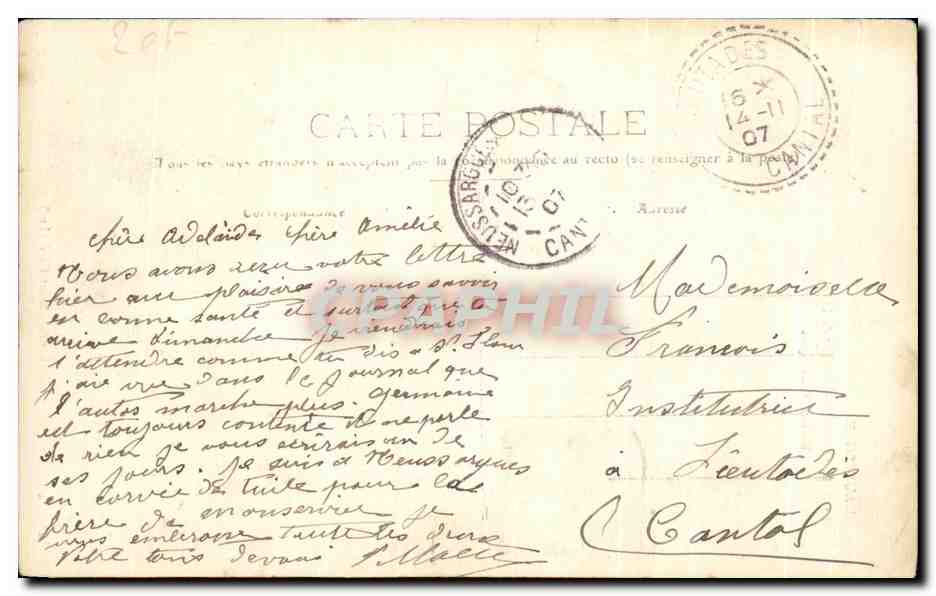 205
CARTE POSTALE
Tous les pays étrangers n'acceptent pas la correspondance au recto (se renseigner à la poste)
Correspondance
Adresse
TADES
16 *
14 -11
07
CANTAL
NEUSSARGUES
10
07
CANT
CPARAPHIL
chère Adelaïde chère Amélie
Nous avons reçu votre lettre
hier au plaisire de vous savoir
en bonne santé et surtout que
arrive Dimanche je viendrais
l'attendre comme tu dis a St Flour
j'aie vue dans le journal que
l'autos marche plus. Germaine
est toujours contente et ne parle
de rien je vous écrirais un de
ses jours. je suis a Neussargues
en corvée de tuile pour le
frère de monservier je
vous embrasse toute les deux
Votre tous devoué
Mademoiselle
François
Institutrice
à Lieutadès
Cantal